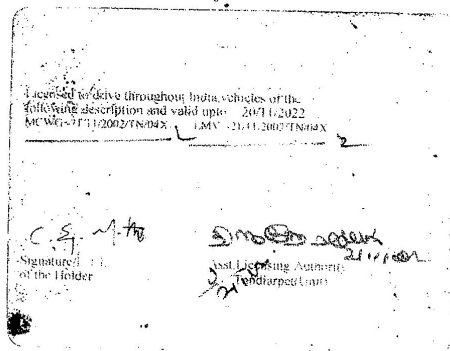 Licensed to drive throughout India, vehicles of the
following description and valid upto 20/11/2022
MCWG-21/11/2002/TN/04X LMV -21/11/2002/TN/04X
2
Signature
of the Holder
Asst.Licensing Authority
Tondiarpet(Unit)